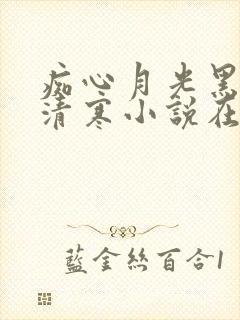 痴心月光黑
清寒小說在
藍金絲百合1